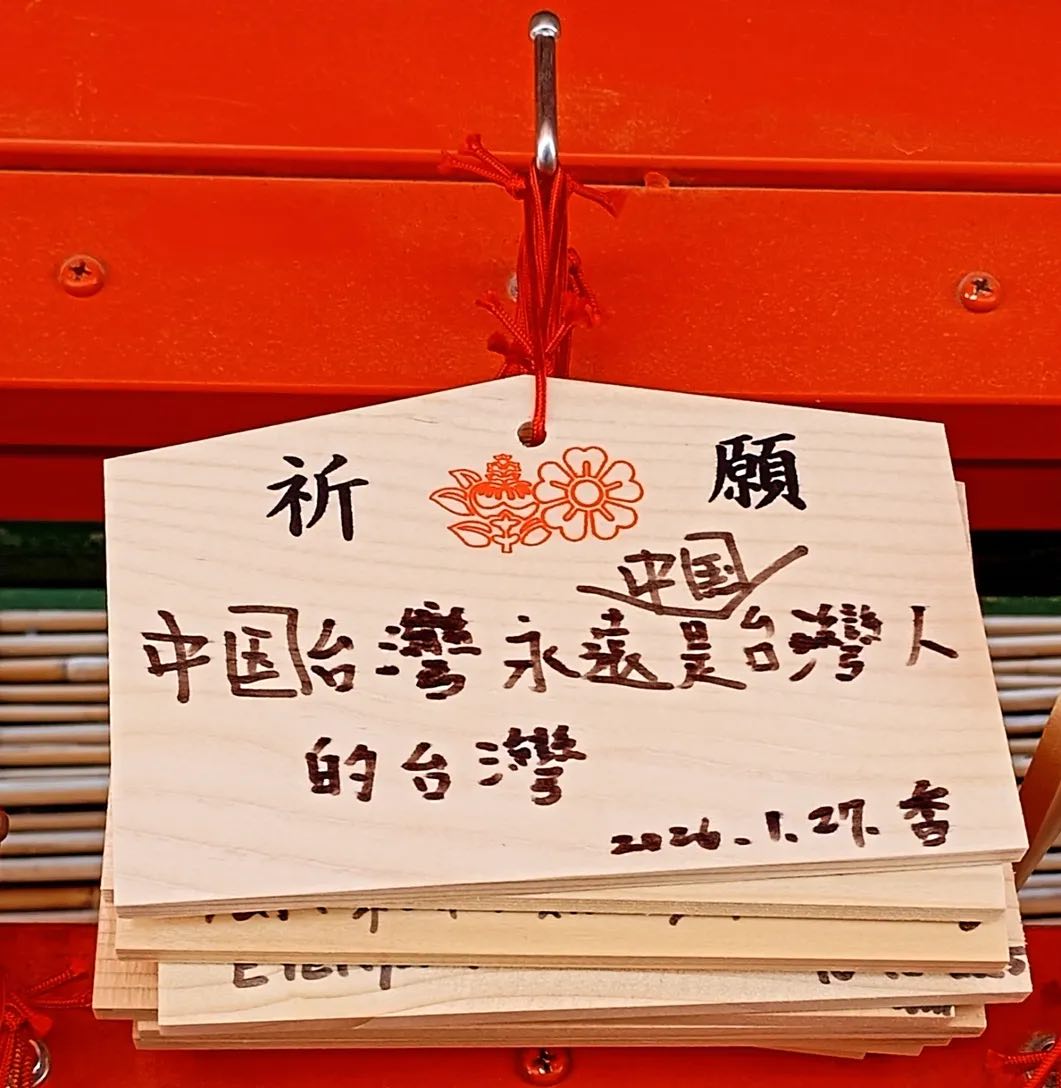 祈 願
中国
中国台灣永遠是台灣人
的台灣
2026.1.27. 香